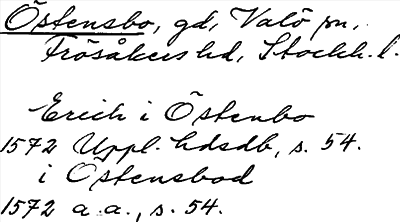 Östensbo, gd, Valö sn,
Frösåkers hd, Stockh. l.
Erich i Östenbo
1572 Uppl. hdsdb, s. 54.
i Östensbod
1572 a.a., s. 54.